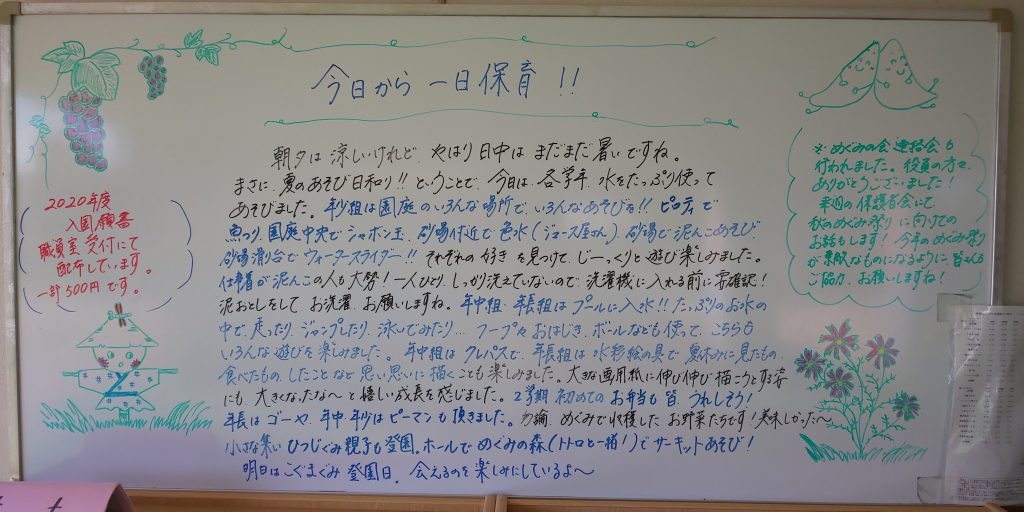 今日から 一日保育 !!
朝夕は 涼しいけれど、やはり 日中は まだまだ 暑いですね。
まさに、夏のあそび日和り!! ということで、今日は、各学年、水をたっぷり使って
あそびました。年少組は園庭のいろんな場所で、いろんなあそびを!! ピロティで
魚つり、園庭中央で シャボン玉、砂場付近で 色水(ジュース屋さん)、砂場で 泥んこあそび
砂場滑り台で ウォータースライダー!! それぞれの 好き を見つけて、じーっくりと 遊び楽しみました。
仕事着が泥んこの人も大勢! 一人ひとり、しっかり洗えていないので、洗濯機に入れる前に 要確認!
泥おとしをして お洗濯 お願いしますね。年中組・年長組は プールに入水!! たっぷりのお水の
中で、走ったり、ジャンプしたり、泳いでみたり... フープや おはじき、ボールなども使って、こちらも
いろんな遊びを楽しみました。年中組は クレパスで、年長組は 水彩絵の具で 夏休みに見たもの、
食べたもの、したことなど 思い思いに描くことも楽しみました。大きな画用紙に伸び伸び描こうとする姿
にも、大きくなったな〜と 嬉しい成長を感じました。2学期 初めての お弁当も皆 うれしそう!
年長は ゴーヤ、年中・年少は ピーマンも頂きました。勿論、めぐみで収穫した お野菜たちです! 美味しかった〜
小さな集い ひつじぐみ親子も登園。ホールで めぐみの森(トトロと一緒!)で サーキットあそび!
明日は こぐまぐみ 登園日。会えるのを 楽しみにしているよ〜
2020年度
入園願書
職員室受付にて
配布しています。
一部500円です。
※めぐみの会 連絡会も
行われました。役員の方々、
ありがとうございました!
来週の保護者会にて
秋のめぐみ祭りに向けての
お話もします! 今年のめぐみ祭り
が素敵なものになるように、皆さんも
ご協力、お願いしますね!